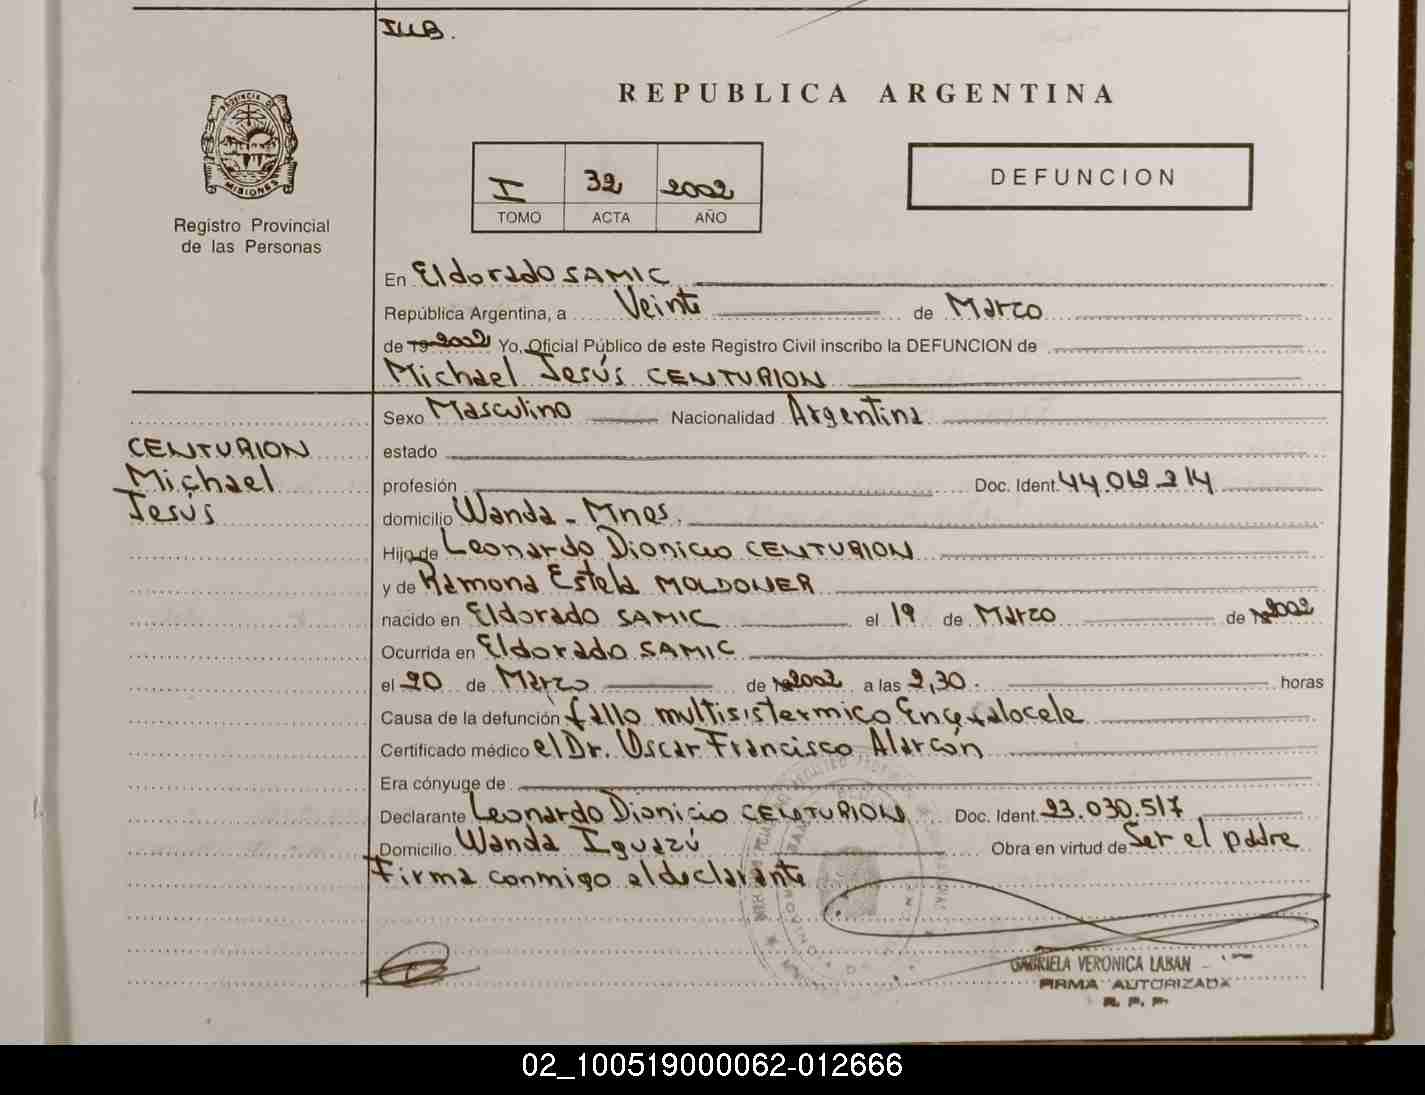 IUB.
REPUBLICA ARGENTINA
PROVINCIA DE
MISIONES
Registro Provincial
de las Personas
I 32 2002
TOMO ACTA AÑO
DEFUNCION
En Eldorado SAMIC
República Argentina, a Veinte de Marzo
de 19 2002 Yo, Oficial Público de este Registro Civil inscribo la DEFUNCION de
Michael Jesús CENTURION
Sexo Masculino Nacionalidad Argentina
CENTURION
Michael
Jesús
estado
profesión Doc. Ident. 44.012.214
domicilio Wanda - Mnes.
Hijo de Leonardo Dionicio CENTURION
y de Ramona Estela MOLDONER
nacido en Eldorado SAMIC el 19 de Marzo de 2002
Ocurrida en Eldorado SAMIC
el 20 de Marzo de 2002 a las 2,30. horas
Causa de la defunción fallo multisistermico Encefalocele
Certificado médico el Dr. Oscar Francisco Alarcón
Era cónyuge de
Declarante Leonardo Dionicio CENTURION Doc. Ident. 23.030.517
Domicilio Wanda Iguazú Obra en virtud de Ser el padre
Firma conmigo el declarante
GABRIELA VERONICA LABAN
FIRMA AUTORIZADA
R. P. P.
02_100519000062-012666